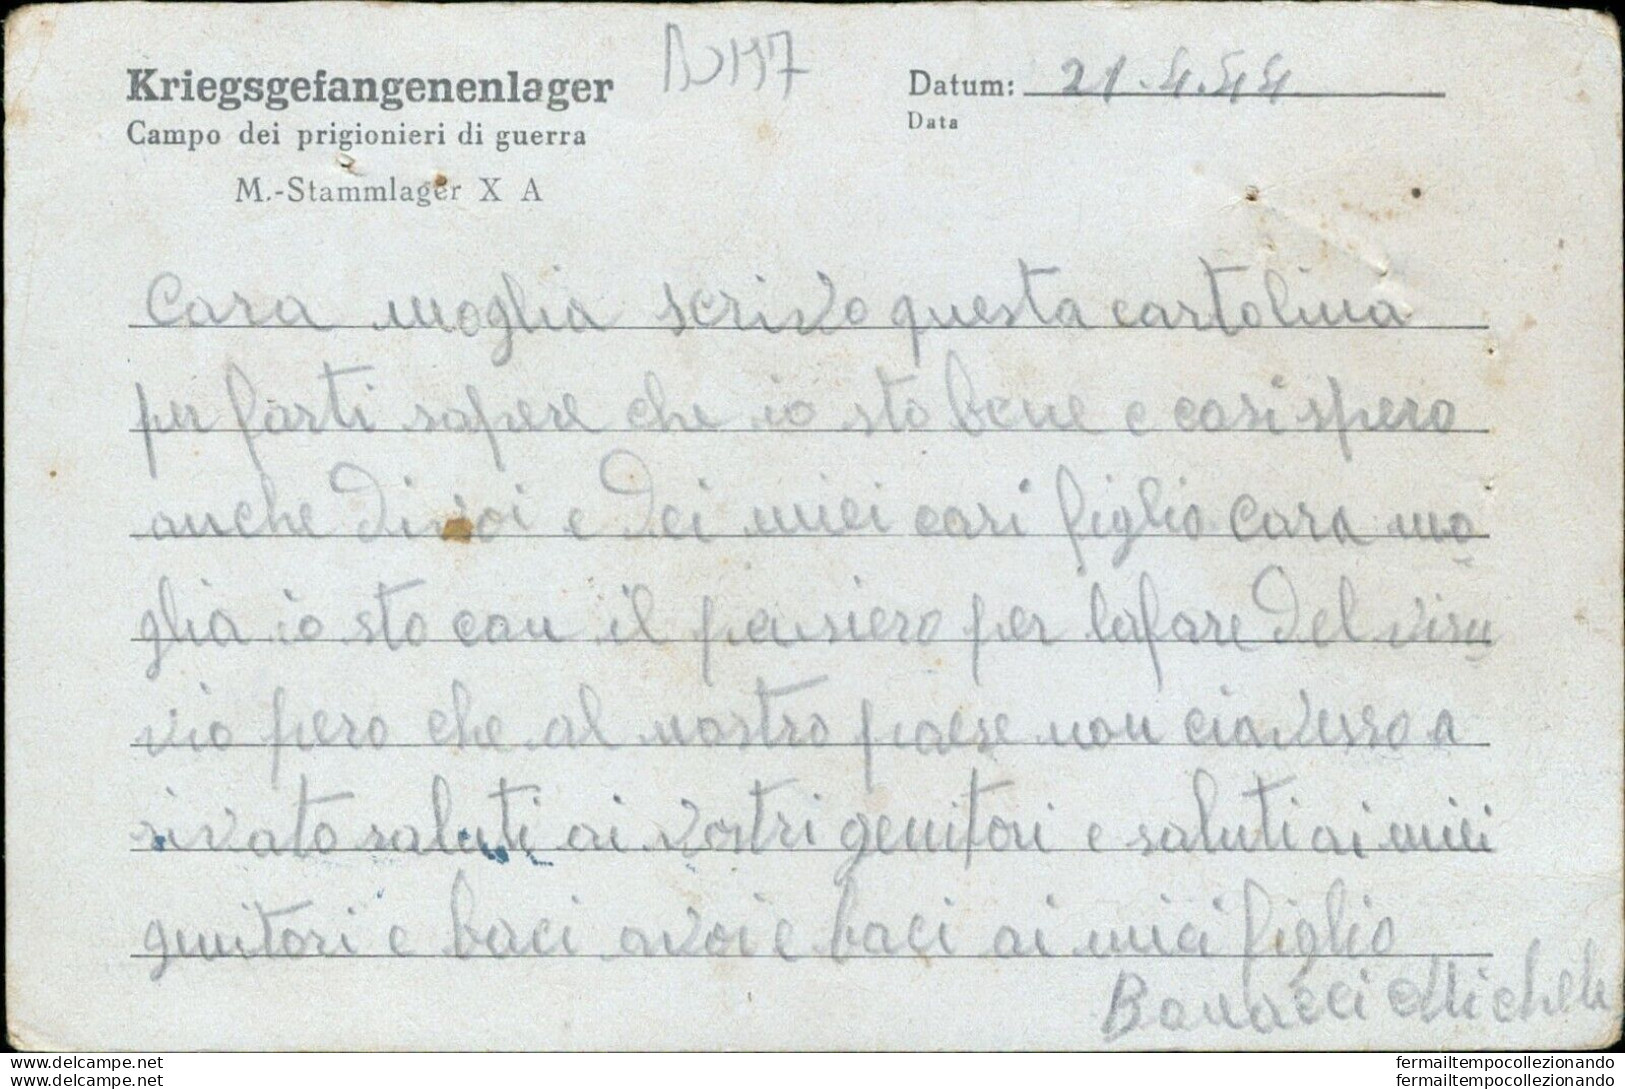 Kriegsgefangenenlager
Campo dei prigionieri di guerra
M.-Stammlager X A
Datum: 21.4.44
Data
Cara moglia scrivo questa cartolina
per farti sapere che io sto bene e cosi spero
anche di voi e dei miei cari figlio cara mo
glia io sto con il pensiero per lafare del visu
vio pero che al nostro paese non ciavesso a
rivato saluti ai vostri genitori e saluti ai miei
genitori e baci avoi e baci ai miei figlio
Bonacci Michele
delcampe.net
delcampe.net
fermailtempocollezionando
fermailtempocollezionando